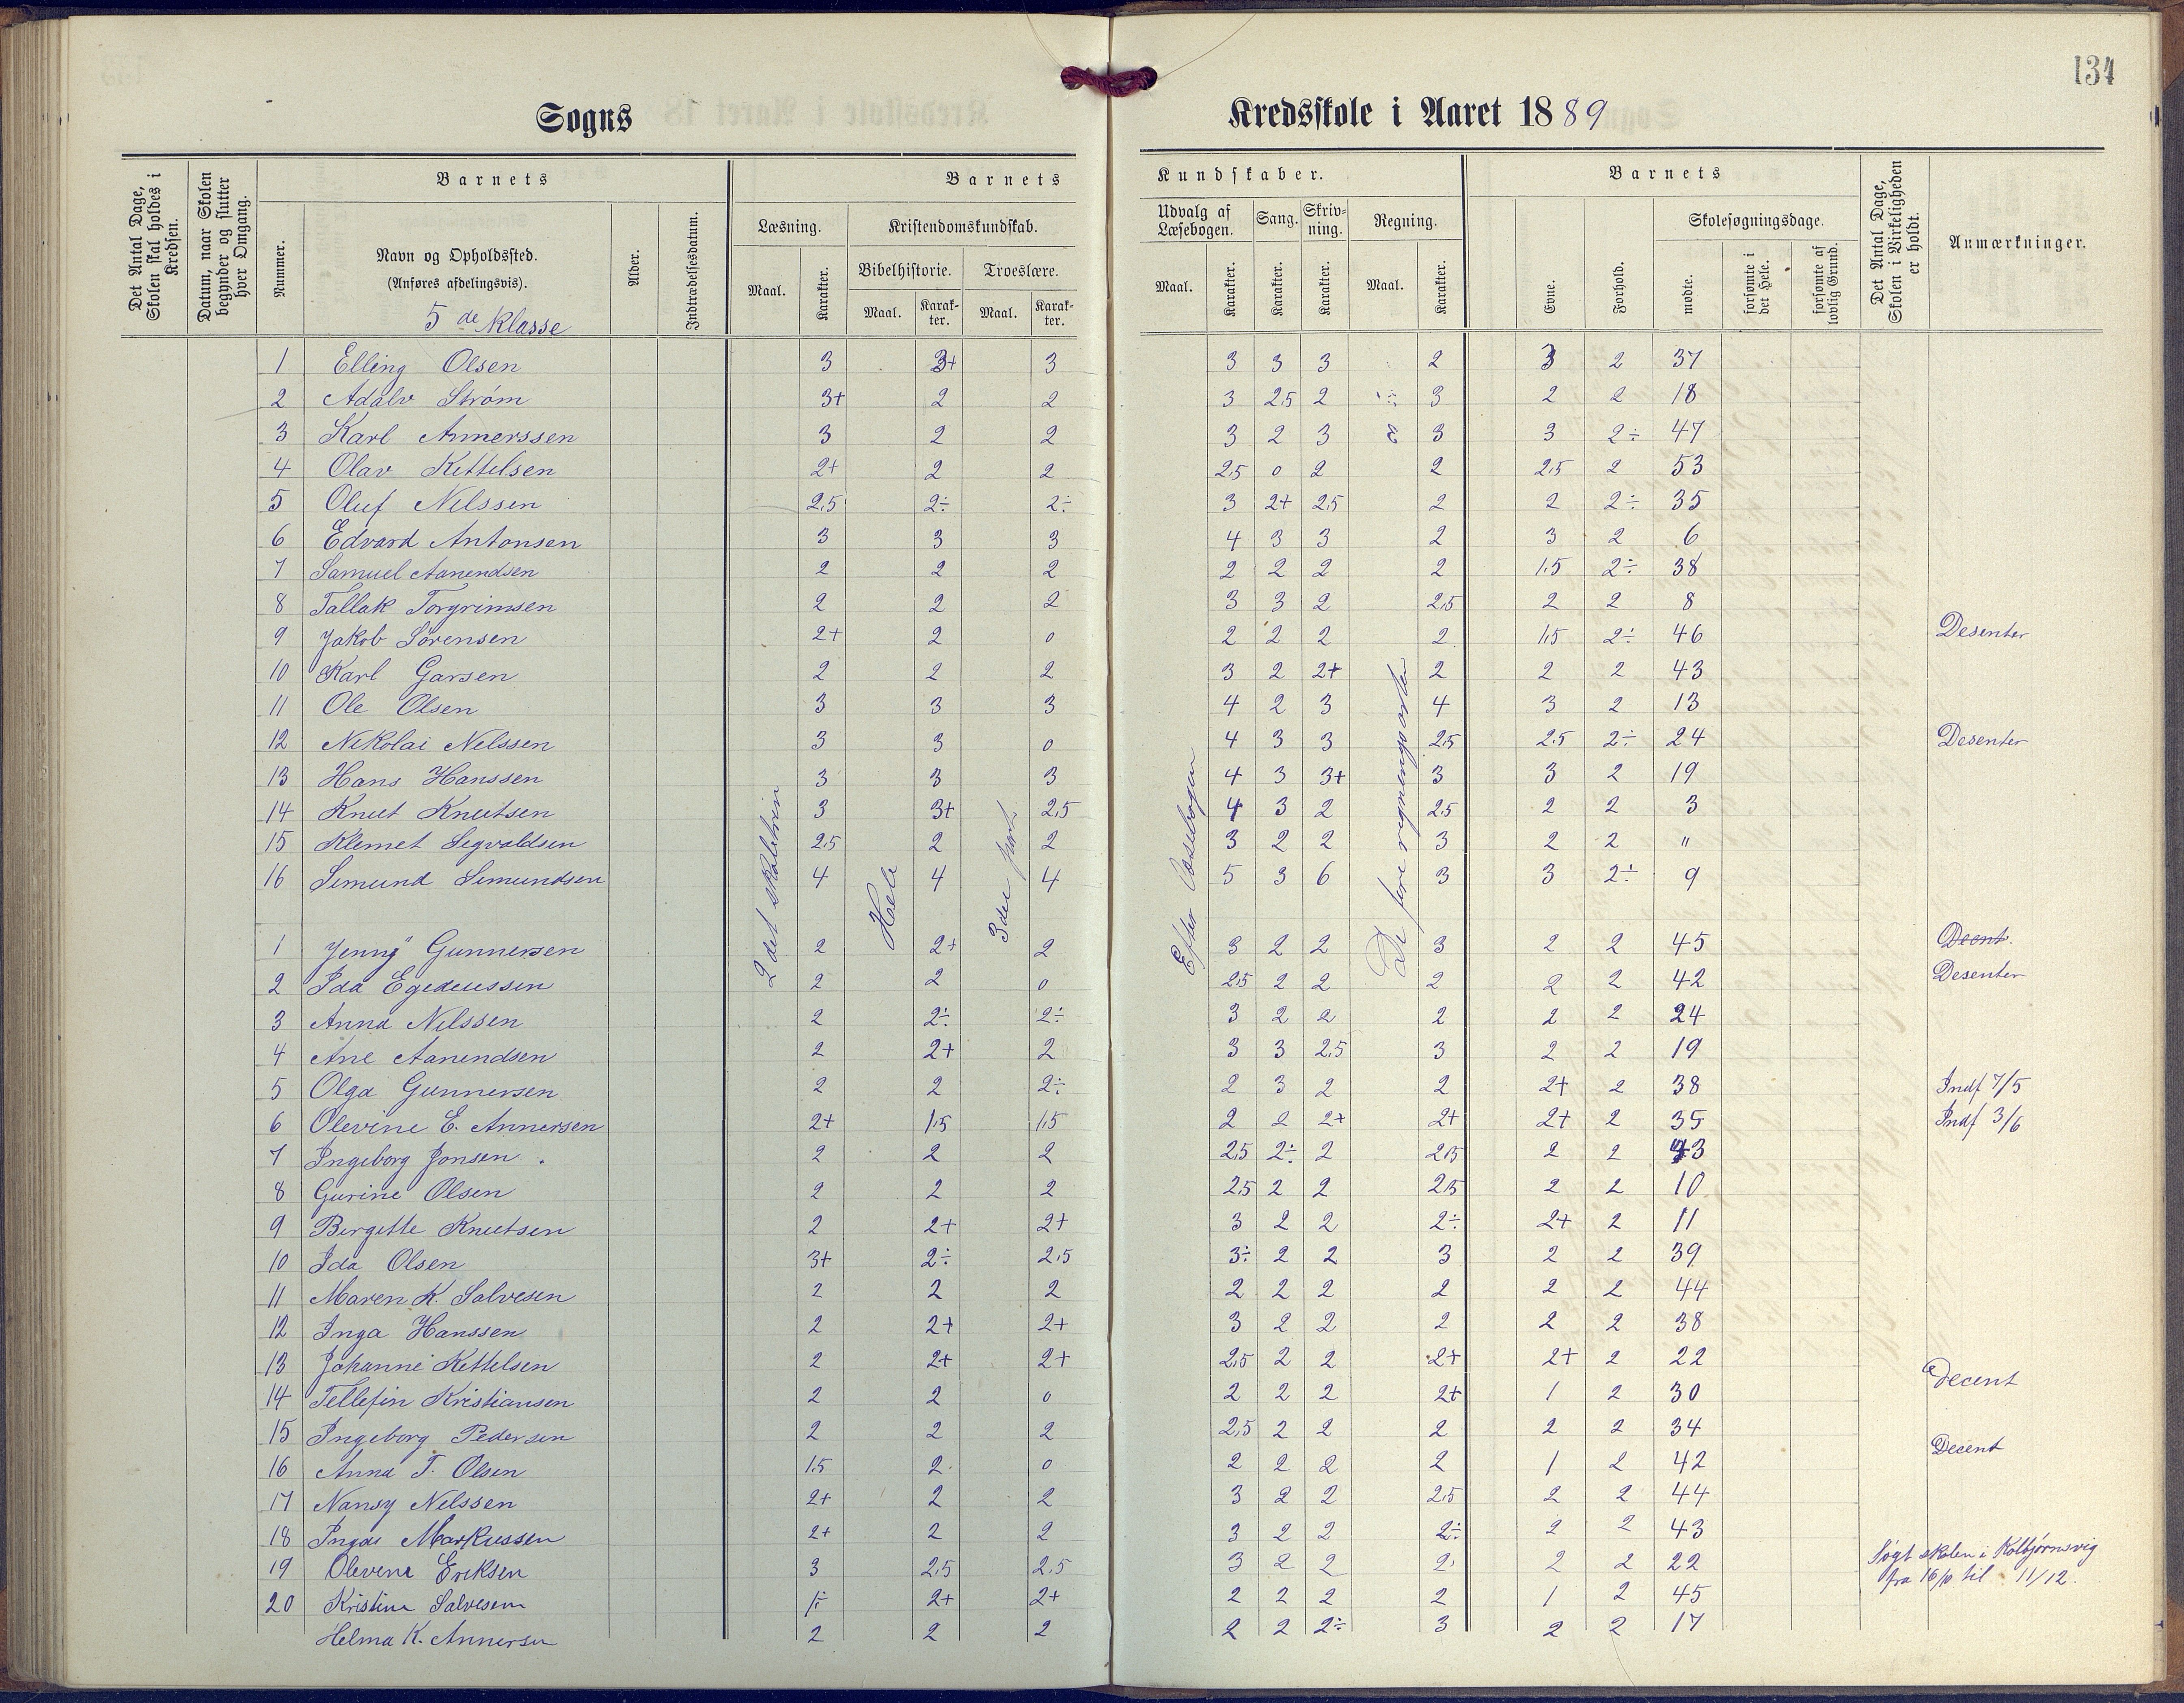 134
Sogns Kredsskole i Aaret 1889
Det Antal Dage, Skolen skal holdes i Kredsen.
Datum, naar Skolen begynder og slutter hver Omgang.
Barnets
Nummer.
Navn og Opholdssted.
(Anføres afdelingsvis).
5 de Klasse
Alder.
Indtrædelsesdatum.
Barnets Kundskaber.
Læsning.
Maal.
Karakter.
Kristendomskundskab.
Bibelhistorie.
Maal.
Karakter.
Troeslære.
Maal.
Karakter.
Udvalg af Læsebogen.
Maal.
Karakter.
Sang.
Karakter.
Skrivning.
Karakter.
Regning.
Maal.
Karakter.
Barnets
Evne.
Forhold.
Skolesøgningsdage.
mødte.
forsømte i det Hele.
forsømte af lovlig Grund.
Det Antal Dage, Skolen i Virkeligheden er holdt.
Anmærkninger.
1 Elling Olsen 3 3+ 3 3 3 3 2 3 2 37
2 Adalv Strøm 3+ 2 2 3 2,5 2 3 2 2 18
3 Karl Annerssen 3 2 2 3 2 3 3 3 2÷ 47
4 Olav Kettelsen 2+ 2 2 2,5 0 2 2 2,5 2 53
5 Oluf Nelssen 2,5 2÷ 2÷ 3 2+ 2,5 2 2 2÷ 35
6 Edvard Antonsen 3 3 3 4 3 3 2 3 2 6
7 Samuel Aanendsen 2 2 2 2 2 2 2 1,5 2÷ 38
8 Tallak Torgrimsen 2 2 2 3 3 2 2,5 2 2 8
9 Jakob Sørensen 2+ 2 0 2 2 2 2 1,5 2÷ 46 Desenter
10 Karl Garsen 2 2 2 3 2 2+ 2 2 2 43
11 Ole Olsen 3 3 3 4 2 3 4 3 2 13
12 Nikolai Nelssen 3 3 0 4 3 3 2,5 2,5 2÷ 24 Desenter
13 Hans Hanssen 3 3 3 4 3 3+ 3 3 2 19
14 Knut Knutsen 3 3+ 2,5 4 3 2 2,5 2 2 3
15 Klemet Segvaldsen 2,5 2 2 3 2 2 3 2 2 "
16 Semund Semundsen 4 4 4 5 3 6 3 3 2÷ 9
2 det skoletrin
Hele
3die part
Efter Læsebogen
De fire regningsarter
1 Jenny Gunnersen 2 2+ 2 3 2 2 3 2 2 45 Decnt.
2 Ida Egedeussen 2 2 0 2,5 2 2 2 2 2 42 Desenter
3 Anna Nelssen 2 2÷ 2÷ 3 2 2 2 2 2 24
4 Ane Aanendsen 2 2+ 2 3 3 2,5 3 2 2 19
5 Olga Gunnersen 2 2 2÷ 2 3 2 2 2+ 2 38 Indf 7/5
6 Olevine E. Annersen 2+ 1,5 1,5 2 2 2+ 2+ 2+ 2 35 Indf 3/6
7 Ingeborg Jonsen 2 2 2 2,5 2÷ 2 2,5 2 2 43
8 Gurine Olsen 2 2 2 2,5 2 2 2,5 2 2 10
9 Bergitte Knutsen 2 2+ 2+ 3 2 2 2÷ 2+ 2 11
10 Ida Olsen 3+ 2÷ 2,5 3÷ 2 2 3 2 2 39
11 Maren K. Salvesen 2 2 2 2 2 2 2 2 2 44
12 Inga Hanssen 2 2+ 2+ 3 2 2 2 2 2 38
13 Johanne Kettelsen 2 2+ 2+ 2,5 2 2 2+ 2+ 2 22
14 Tellefin Kristiansen 2 2 0 2 2 2 2+ 1 2 30 Decent
15 Ingeborg Pedersen 2 2 2 2,5 2 2 2 2 2 34
16 Anna T. Olsen 1,5 2 0 2 2 2 2 1 2 42 Decent
17 Nansy Nelssen 2+ 2 2 3 2 2 2,5 2 2 44
18 Ingar Markussen 2+ 2 2 3 2 2 2÷ 2 2 43
19 Olevene Eriksen 3 2,5 2,5 3 2 2 2 2 2 22 Søgt skolen i Kolbjørnsvig
fra 16/10 til 11/12.
20 Kristine Salvesen 1÷ 2+ 2+ 2 2 2 2 1 2 45
Helma K. Annersen 2 2 2 2 2 2÷ 3 2 2 17